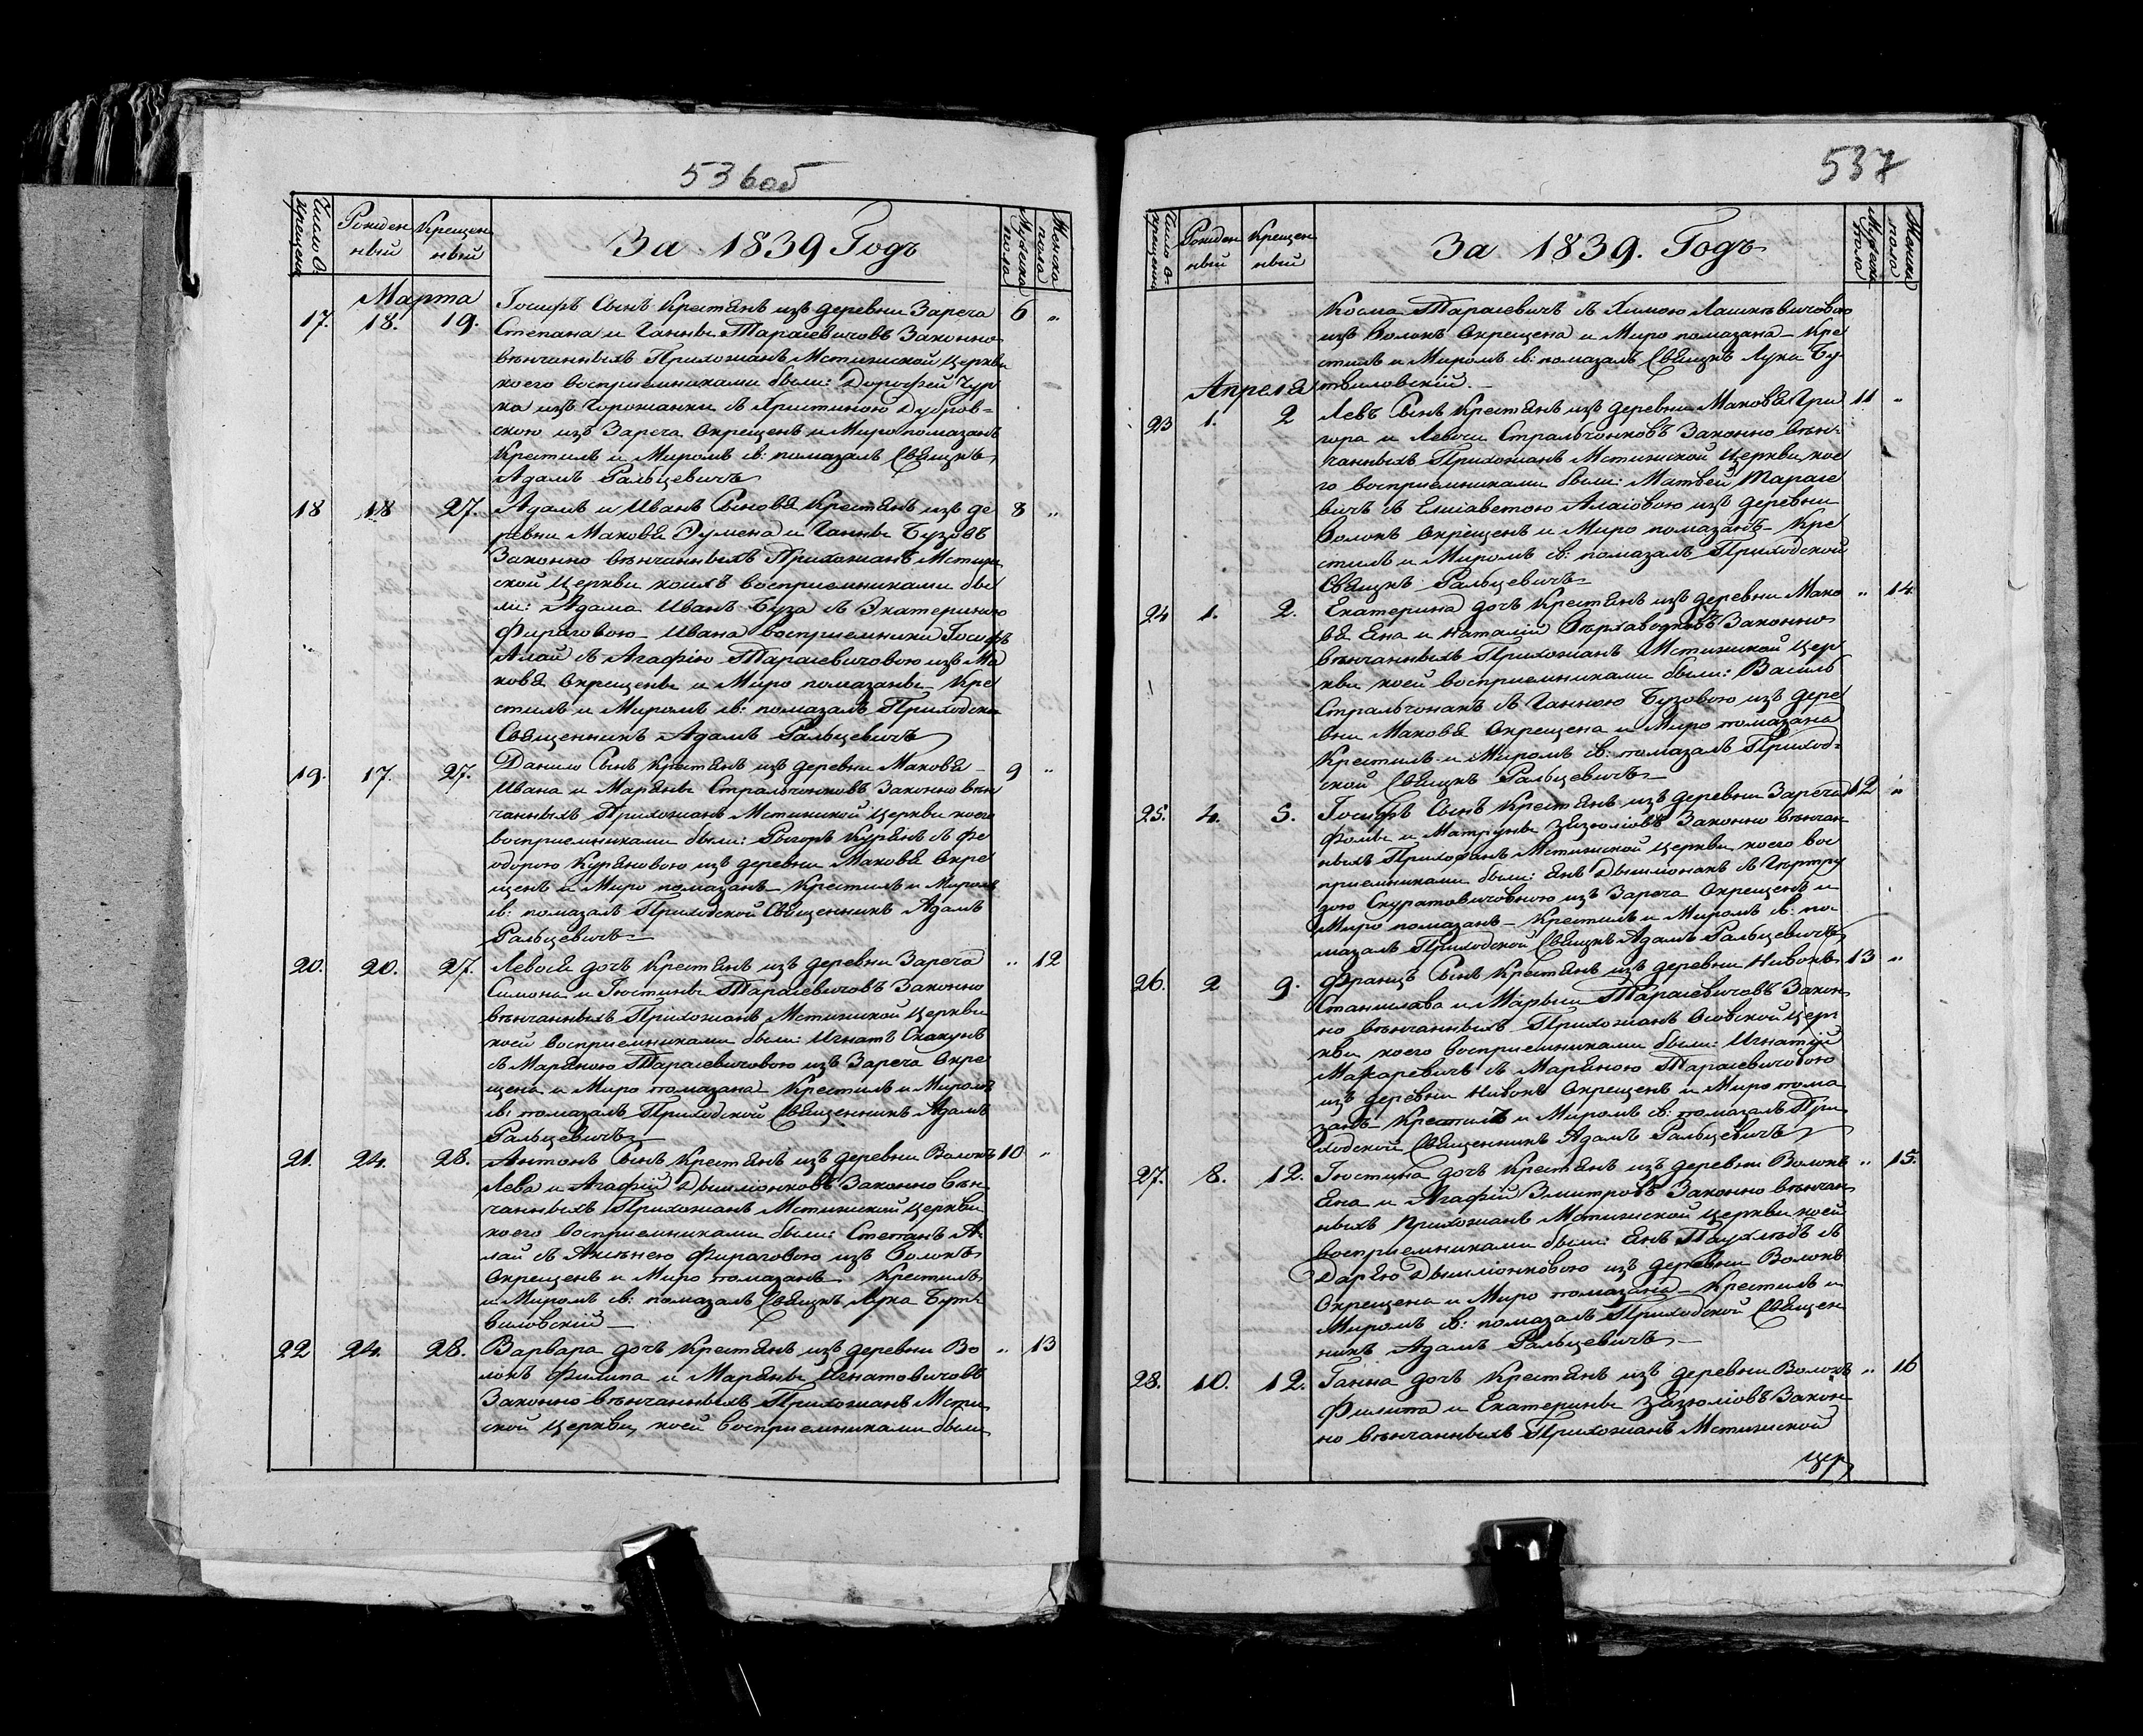 536об
Число о крещен
Рожден
ный
Крещен
ный
За 1839 Годъ
Мужеска пола
Женска пола
Марта
17. 18. 19. Іосифъ Сынъ Крестянъ изъ деревни Зареча 6 "
Степана и Ганны Тарасевичовъ Законно
вѣнчанныхъ Прихожанъ Мстижской Церкви
коего воспріемниками были: Дорофей Чур
ка изъ Горожанки съ Христиною Дубров=
скою изъ Зареча Окрещенъ и Миропомазанъ
Крестилъ и Миромъ св: помазалъ Свящкъ
Адамъ Ральцевичъ
18 18 27. Адамъ и Иванъ Сыновя Крестянъ изъ де 8 "
ревни Маковя Эумена и Ганны Бузовъ
Законно вѣнчанныхъ Прихожанъ Мстиж
ской Церкви коихъ воспріемниками бы
ли: Адама Иванъ Буза съ Экатериною
Фираговою Ивана воспріемники Іосифъ
Алай съ Агафію Тарасевичовою изъ Ма
ковя Окрещены и Миро помазаны Кре
стилъ и Миромъ св: помазалъ Приходско
Священникъ Адамъ Ральцевичъ
19. 17. 27. Данило Сынъ Крестянъ изъ деревни Маковя 9 "
Ивана и Маряны Стральчонковъ Законно вѣн
чанныхъ Прихожанъ Мстижской Церкви коего
воспріемниками были: Рыгоръ Курянъ съ Фе
одорою Куряновою изъ деревни Маковя Окре
щенъ и Миро помазанъ Крестилъ и Миромъ
св: помазалъ Приходской Священникъ Адамъ
Ральцевичъ
20. 20. 27. Левося дочь Крестянъ изъ деревни Зареча " 12
Симона и Іюстины Тарасевичовъ Законно
вѣнчанныхъ Прихожанъ Мстижской Церкви
коей воспріемниками были: Игнатъ Скакунъ
съ Маряною Тарасевичовою изъ Зареча Окре
щена и Миро помазана Крестилъ и Миромъ
св: помазалъ Приходской Священникъ Адамъ
Ральцевичъ
21. 24. 28. Антонъ Сынъ Крестянъ изъ деревни Волокъ 10 "
Лева и Агафіи Дышлёнковъ Законно вѣн
чанныхъ Прихожанъ Мстижской Церкви
коего воспріемниками были: Степанъ А
лай съ Аксѣнею Фираговою изъ Волокъ
Окрещенъ и Миро помазанъ Крестилъ
и Миромъ св: помазалъ Свящкъ Лука Буть
виловскій
22 24. 28. Варвара дочь Крестянъ изъ деревни Во " 13
локъ Филипа и Маряны Игнатовичовъ
Законно вѣнчанныхъ Прихожанъ Мстиж
ской Церкви, коей воспріемниками были
537
Число о крещен
Рожден
ный
Крещен
ный
За 1839. Годъ
Мужеска пола
Женска пола
Косма Тарасевичъ съ Химою Лашкевичовою
изъ Волокъ Окрещена и Миро помазана Кре
стилъ и Миромъ св: помазалъ Свящкъ Лука Бу
Апреля
тьвиловскій.
23 1. 2 Левъ Сынъ Крестянъ изъ деревни Маковя Гри 11 "
гора и Левоси Стральчонковъ Законно вѣн-
чанныхъ Прихожанъ Мстижской Церкви кое
го воспріемниками были: Матвей Тарасе
вичъ съ Елисаветою Алаіовою изъ деревни
Волокъ Окрещенъ и Миро помазанъ Кре
стилъ и Миромъ св: помазалъ Приходской
Свящкъ Ральцевичъ
24 1. 2. Екатерина дочь Крестянъ изъ деревни Мако " 14.
вя Яна и Наталіи Законно
вѣнчанныхъ Прихожанъ Мстижской Цер
кви коей воспріемниками были: Василь
Стральчонакъ съ Ганною Бузовою изъ дере
вни Маковя Окрещена и Миро помазана
Крестилъ и Миромъ св: помазалъ Приход=
ской Свящкъ Ральцевичъ
25. 4. 5. Іосифъ Сынъ Крестянъ изъ деревни Зареча 12 "
Фомы и Матруны Зязюліовъ Законно вѣнчан
ныхъ Прихожанъ Мстижской Церкви коего вос
пріемниками были: Янъ Дышлонакъ съ Гертру
дою Скуратовичовною изъ Зареча Окрещенъ и
Миро помазанъ Крестилъ и Миромъ св: по
мазалъ Приходской Свящкъ Адамъ Ральцевичъ
26. 2 9. Францъ Сынъ Крестянъ изъ деревни Нивокъ 13 "
Станислава и Марыи Тарасевичовъ Закон
но вѣнчанныхъ Прихожанъ Осовской Цер
кви коего воспріемниками были: Игнатій
Макаревичъ съ Маряною Тарасевичовою
изъ деревни Нивокъ Окрещенъ и Миро пома
занъ Крестилъ и Миромъ св: помазалъ При
ходской Священникъ Адамъ Ральцевичъ
27. 8. 12. Іюстына дочь Крестянъ изъ деревни Волокъ " 15.
Яна и Агафіи Змитровъ Законно вѣнчан
ныхъ Прихожанъ Мстижской Церкви коей
воспріемниками были: Янъ съ
Дарею Дышліонковою изъ деревни Волокъ
Окрещена и Миро помазана Крестилъ и
Миромъ св: помазалъ Приходской Священ
никъ Адамъ Ральцевичъ
28. 10. 12. Ганна дочь Крестянъ изъ деревни Волокъ " 16
Филипа и Екатерины Зязюліовъ Закон
но вѣнчанныхъ Прихожанъ Мстижской
цер